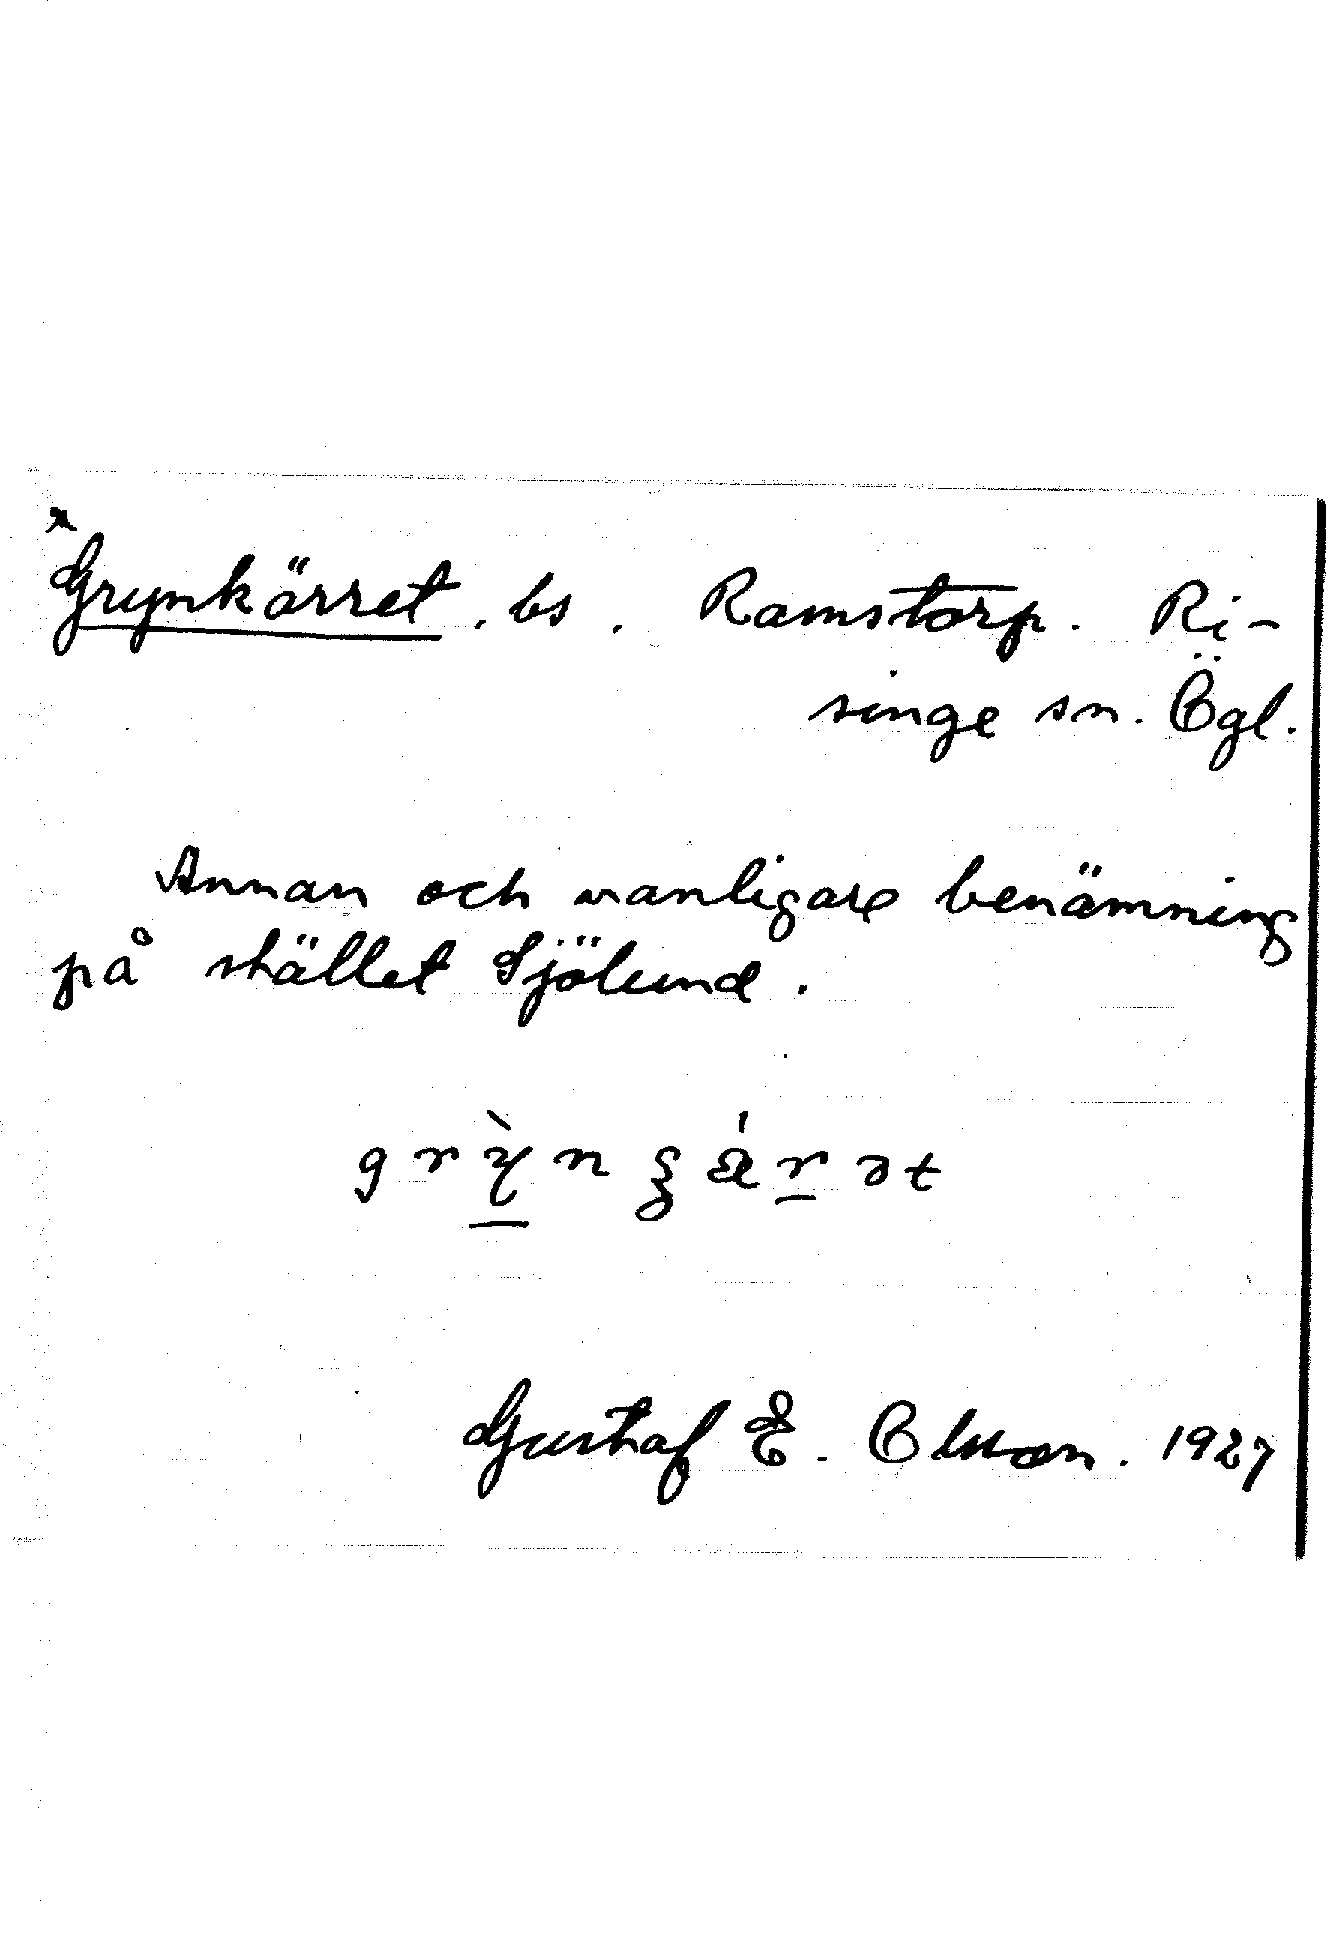 x
Grynkärret. bs. Ramstorp. Ri-
singe sn. Ögl.
Annan och vanligare benämning
på stället Sjölund.
Gustaf E. Olsson. 1927